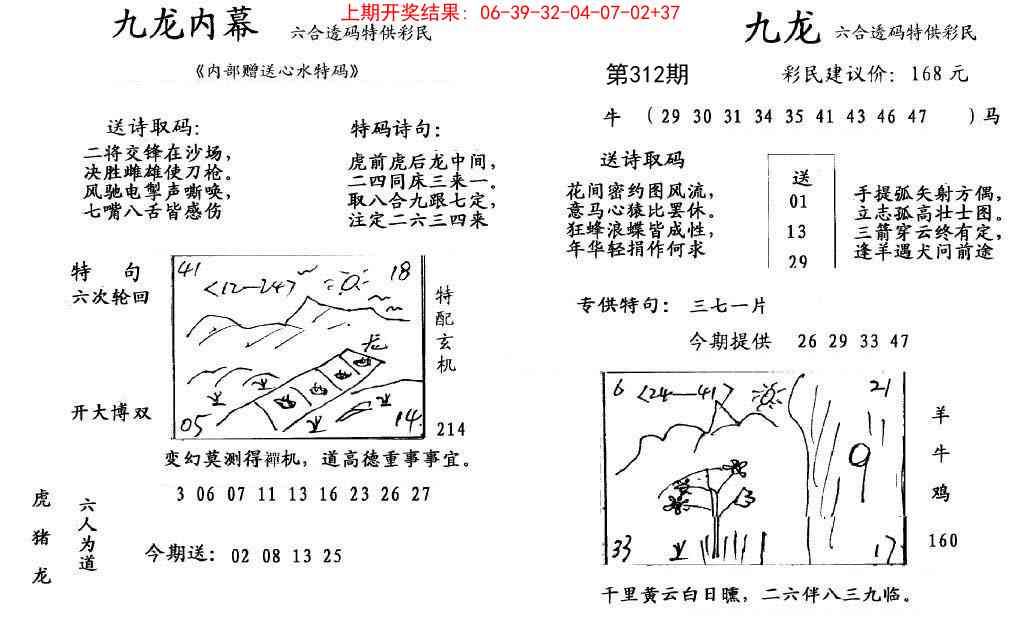 上期开奖结果：06-39-32-04-07-02+37
九龙内幕 六合透码特供彩民
《内部赠送心水特码》
送诗取码：
二将交锋在沙场，
决胜雌雄使刀枪。
风驰电掣声嘶唤，
七嘴八舌皆感伤
特码诗句：
虎前虎后龙中间，
二四同床三来一。
取八合九跟七定，
注定二六三四来
特 句
六次轮回
开大博双
41
18
<12—24>
龙
05
14
特配玄机
214
变幻莫测得禪机，道高德重事事宜。
3 06 07 11 13 16 23 26 27
虎
猪
龙
六人为道
今期送：02 08 13 25
九龙 六合透码特供彩民
第312期 彩民建议价：168 元
牛 （29 30 31 34 35 41 43 46 47 ）马
送诗取码
花间密约图风流，
意马心猿比罢休。
狂蜂浪蝶皆成性，
年华轻捐作何求
送
01
13
29
手提弧矢射方偶，
立志孤高壮士图。
三箭穿云终有定，
逢羊遇犬问前途
专供特句：三七一片
今期提供 26 29 33 47
6
<24—41>
21
9
33
17
羊
牛
鸡
160
千里黄云白日曛，二六伴八三九临。